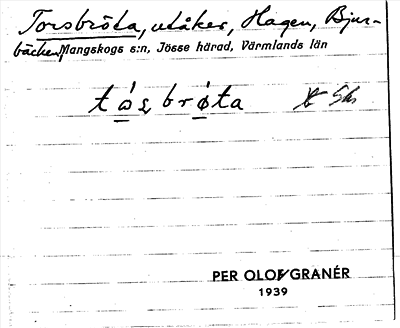 Torsbröta, utåker, Hagen, Bjur-
bäcken, Mangskogs s:n, Jösse härad, Värmlands län
tos̠brøta
PER OLOF GRANÉR
1939